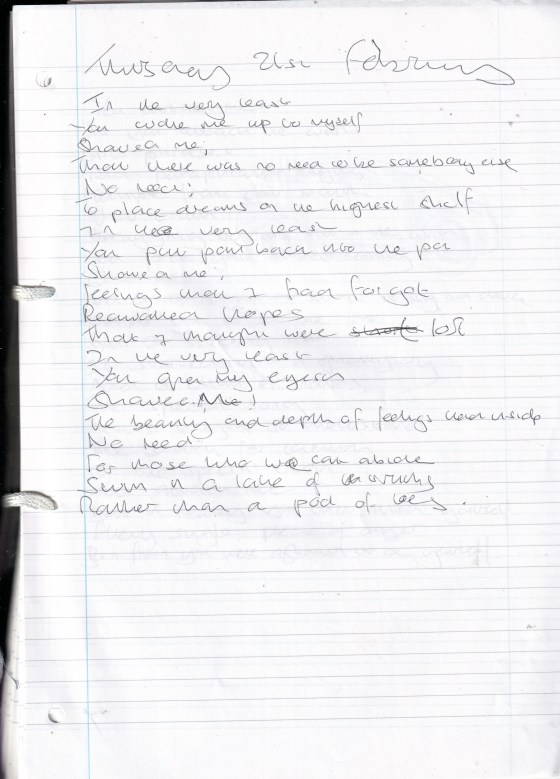 Thursday 21st February
In the very least
You woke me up to myself
Showed me;
That there was no need to be somebody else
No need;
To place dreams on the highest shelf
In the very least
You put back into the
Showed me;
Feelings that I had forgot
Reawakened hopes
That I thought were lost
In the very least
You open my eyes
Showed Me!
The beauty and depth of feelings held inside
No need
For those who we can abide
Swim in a lake of
Rather than a pool of lies.